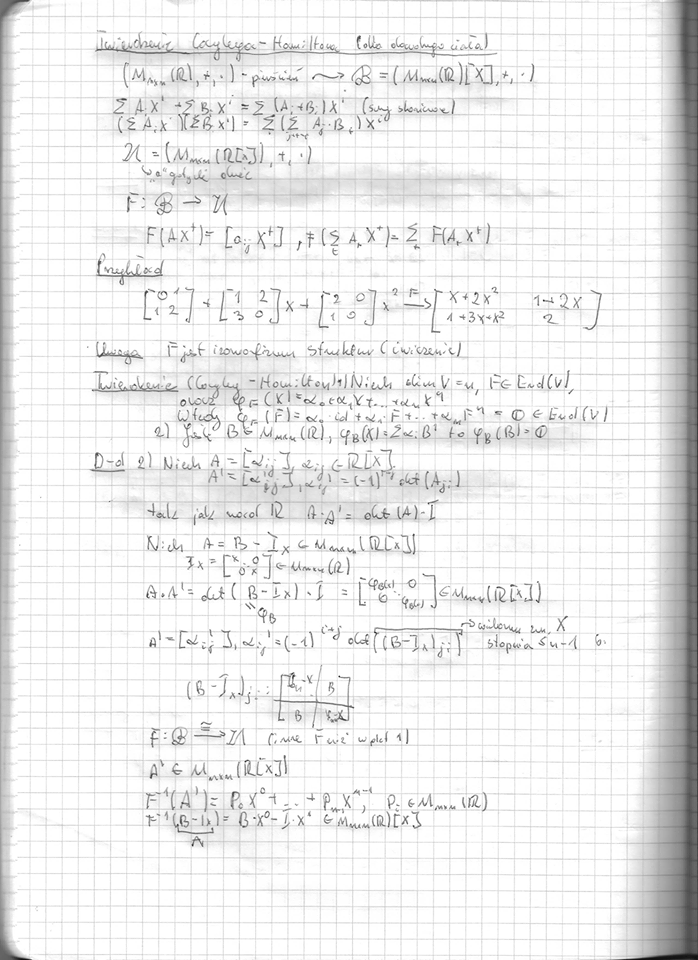 Twierdzenie Cayleya-Hamiltona (dla dowolnego ciała)
(M_{n×n}(ℝ), +, ·) - pierścień ⇝ 𝓑 = (M_{n×n}(ℝ)[X], +, ·)
∑ A_i X^i + ∑ B_i X^i = ∑ (A_i + B_i) X^i (sumy skończone)
(∑ A_i X^i)(∑ B_i X^i) = ∑ (∑ A_j · B_t) X^i
𝒰 = (M_{n×n}(ℝ[X]), +, ·)
F: 𝓑 → 𝒰
F(AX^t) = [a_{ij} X^t], F(∑_t A_t X^t) = ∑_t F(A_t X^t)
Przykład
[0 1; 1 2] + [1 2; 3 0] X + [2 0; 1 0] X² →^F [X+2X² 1+2X; 1+3X+X² 2]
Uwaga F jest izomorfizmem struktur (ćwiczenie)
Twierdzenie (Cayley-Hamilton) 1) Niech dim V = n, F ∈ End(V),
oraz φ_F(X) = α_0 + α_1 X + ... + α_n X^n
Wtedy φ_F(F) = α_0 · id + α_1 F + ... + α_n F^n = 𝟘 ∈ End(V)
2) Jeśli B ∈ M_{n×n}(ℝ), φ_B(X) = ∑ α_i B^i to φ_B(B) = 𝟘
D-d 2) Niech A = [α_{ij}], α_{ij} ∈ ℝ[X]
A' = [α'_{ij}], α'_{ij} = (-1)^{i+j} det(A_{ji})
tak jak nad ℝ A · A' = det(A) · I
Niech A = B - I_X ∈ M_{n×n}(ℝ[X])
I_X = [X 0; 0 X] ∈ M_{n×n}(ℝ)
A · A' = det(B - I_X) · I = [φ_B(X) 0; 0 φ_B(X)] ∈ M_{n×n}(ℝ[X])
= φ_B
A' = [α'_{ij}], α'_{ij} = (-1)^{i+j} det((B - I_X)_{ji}) → wielomian zm. X
stopnia ≤ n-1
(B - I_X)_{ji}
F: 𝓑 →^≅ 𝒰 (inne F niż w pkt 1)
A' ∈ M_{n×n}(ℝ[X])
F^{-1}(A') = P_0 X^0 + ... + P_{n-1} X^{n-1}, P_i ∈ M_{n×n}(ℝ)
F^{-1}(B - I_X) = B · X^0 - I · X^1 ∈ M_{n×n}(ℝ)[X]
A